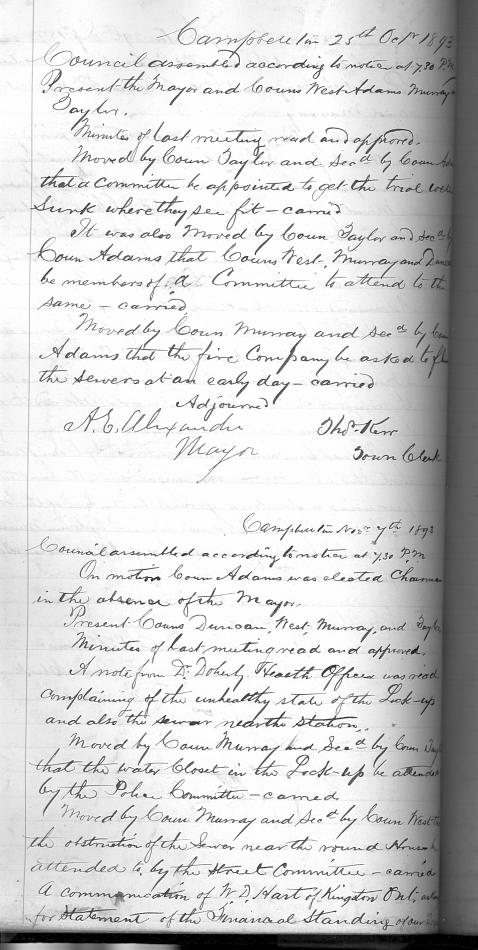 Campbellton 25th Octr 1893
Council assembled according to notice at 7.30 P.M
Present the Mayor and Couns West Adams Murray
Taylor.
Minutes of last meeting read and approved.
Moved by Coun Taylor and Secd by Coun
that a Committee be appointed to get the trial
Sunk where they see fit – carried
It was also Moved by Coun Taylor and Secd by
Coun Adams that Couns West, Murray and
be members of a Committee to attend to the
same – carried
Moved by Coun Murray and Secd by
Adams that the fire Company be asked to
the sewers at an early day – carried
Adjourned
A. E. Alexander Thos. Kerr
Mayor Town Clerk
Campbellton Novr 7th 1893
Council assembled according to notice at 7.30 P.M
On motion Coun Adams was elected Chairman
in the absence of the Mayor.
Present Couns Duncan, West, Murray, and
Minutes of last meeting read and approved.
A note from Dr. Doherty Health Officer was read
complaining of the unhealthy state of the Lock-up
and also the sewer near the station.
Moved by Coun Murray and Secd by Coun
that the water Closet in the Lock-up be attended
by the Police Committee – carried
Moved by Coun Murray and Secd by Coun West
the obstruction of the Sewer near the round House
attended to, by the Street Committee – carried
A communication of W. D. Hart of Kingston Ont.
for Statement of the Financial Standing of our